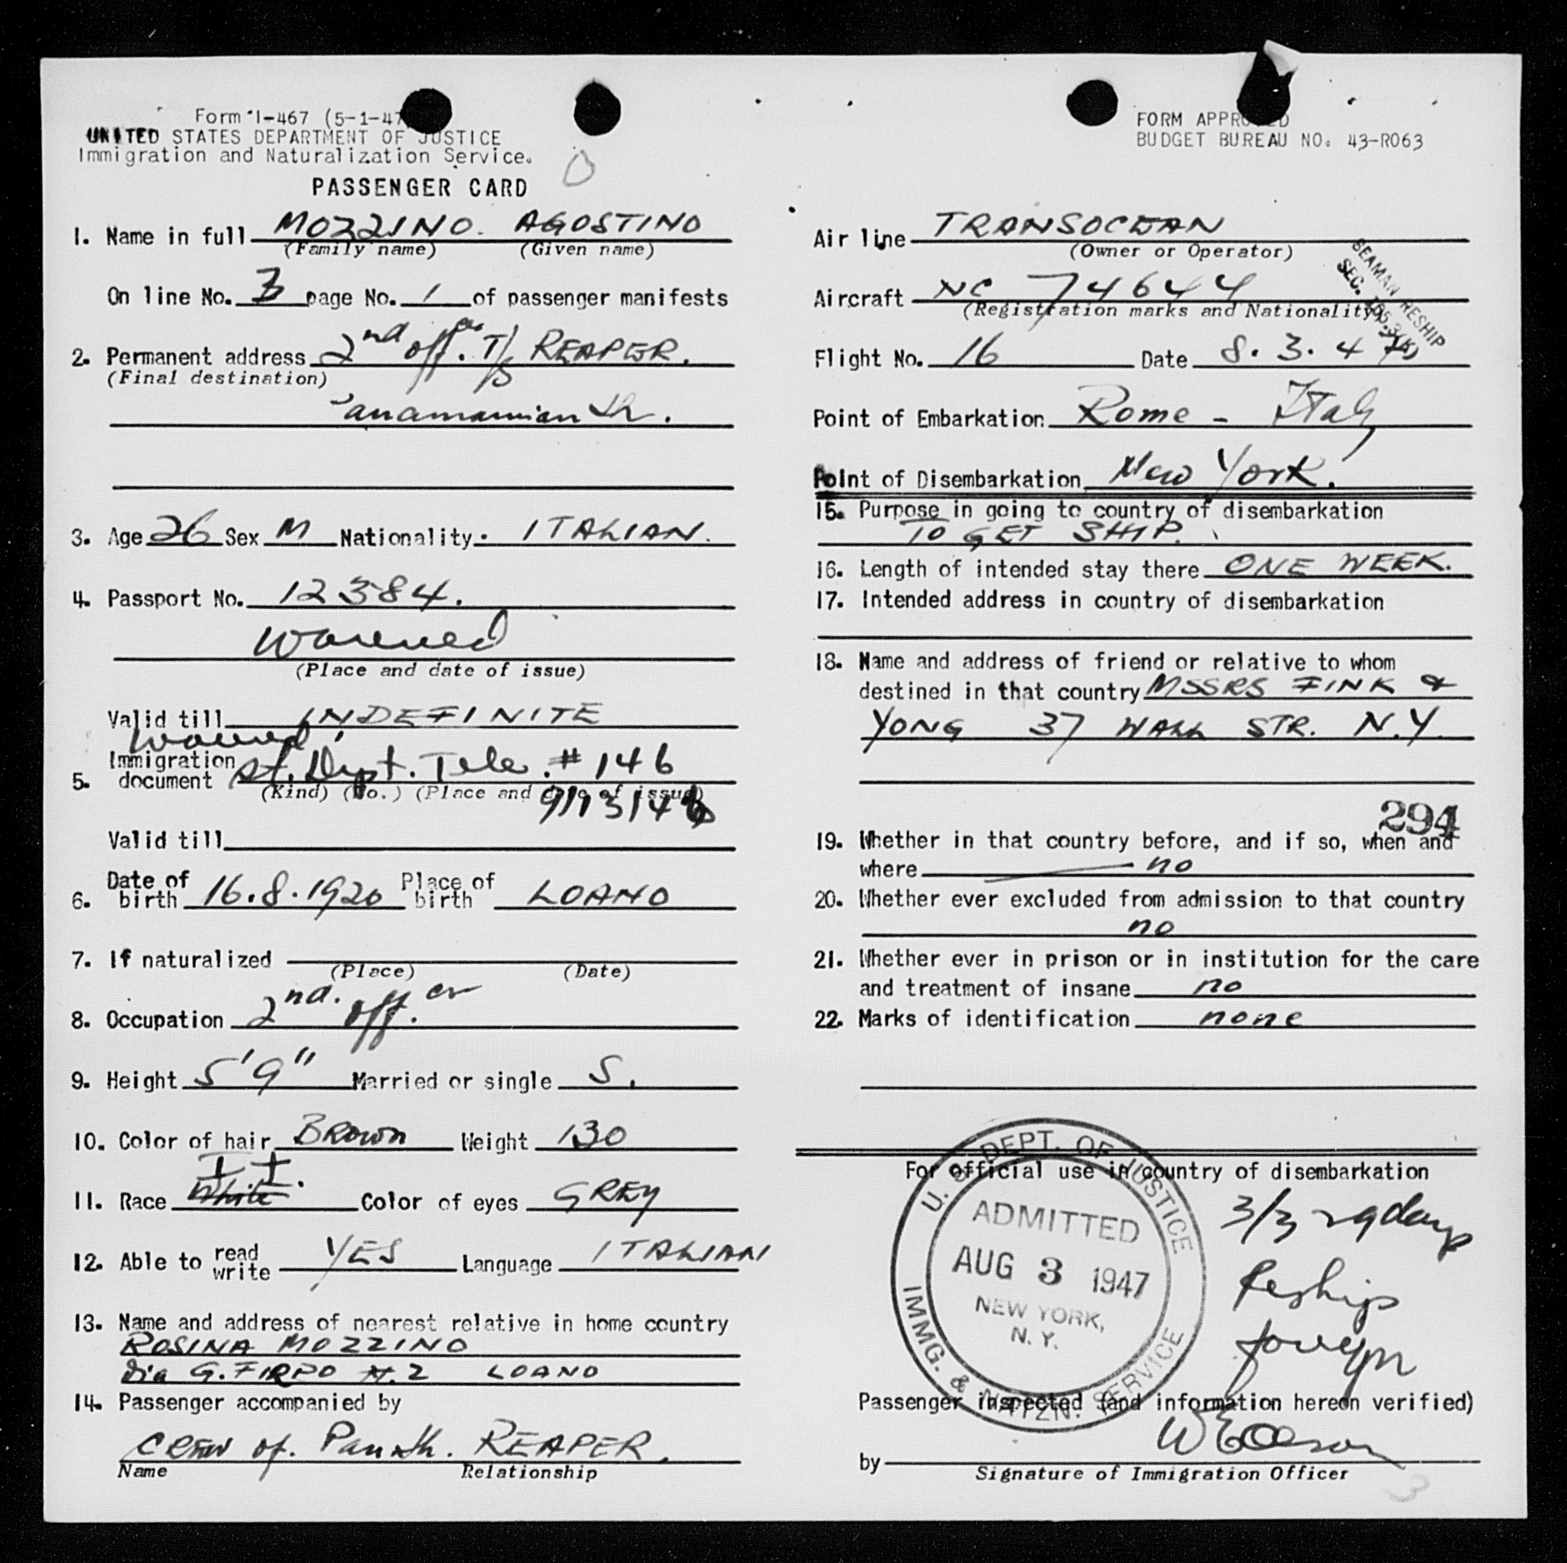 Form I-467 (5-1-47
UNITED STATES DEPARTMENT OF JUSTICE
Immigration and Naturalization Service.
PASSENGER CARD
1. Name in full MOZZINO. AGOSTINO
(Family name) (Given name)
On line No. 3 page No. 1 of passenger manifests
2. Permanent address 2nd off.cer T/S REAPER.
(Final destination)
Panamanian Sh.
3. Age 26 Sex M Nationality. ITALIAN.
4. Passport No. 12384.
waived
(Place and date of issue)
Valid till INDEFINITE
waived
5. Immigration document St. Dept. Tele. # 146
(Kind) (No.) (Place and date of issue)
9/13/46
Valid till
6. Date of birth 16.8.1920 Place of birth LOANO
7. If naturalized
(Place) (Date)
8. Occupation 2nd. off.cer
9. Height 5'9" Married or single S.
10. Color of hair BROWN Weight 130
It.
11. Race White Color of eyes GREY
12. Able to read write YES Language ITALIAN
13. Name and address of nearest relative in home country
ROSINA MOZZINO
Via G. FIRPO N. 2 LOANO
14. Passenger accompanied by
CREW of. Pan. Sh. REAPER.
Name Relationship
FORM APPROVED
BUDGET BUREAU NO. 43-R063
Air line TRANSOCEAN
(Owner or Operator)
SEAMAN RESHIP
SEC.
Aircraft NC 74644
(Registration marks and Nationality)
Flight No. 16 Date 8.3.47
Point of Embarkation Rome - Italy
Point of Disembarkation New York.
15. Purpose in going to country of disembarkation
TO GET SHIP.
16. Length of intended stay there ONE WEEK.
17. Intended address in country of disembarkation
18. Name and address of friend or relative to whom
destined in that country MSSRS FINK &
YONG 37 WALL STR. N.Y.
294
19. Whether in that country before, and if so, when and
where no
20. Whether ever excluded from admission to that country
no
21. Whether ever in prison or in institution for the care
and treatment of insane no
22. Marks of identification none
For official use in country of disembarkation
U. S. DEPT. OF JUSTICE
ADMITTED
AUG 3 1947
NEW YORK,
N. Y.
IMMG. & NATZN. SERVICE
3/3 29 days
Reship
foreign
Passenger inspected (and information hereon verified)
by
Signature of Immigration Officer
3